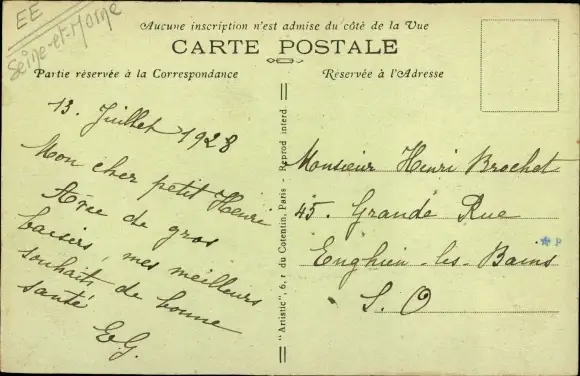 EE
Seine-et-Marne
Aucune inscription n'est admise du côté de la Vue
CARTE POSTALE
Partie réservée à la Correspondance
Réservée à l'Adresse
13. Juillet 1928
Mon cher petit Henri
Avec de gros
baisers, mes meilleurs
souhaits de bonne
santé
EG.
"Artistic", 6, r du Cotentin, Paris - Reprod interd.
Monsieur Henri Brochet
45. Grande Rue
Enghien-les-Bains
S. O